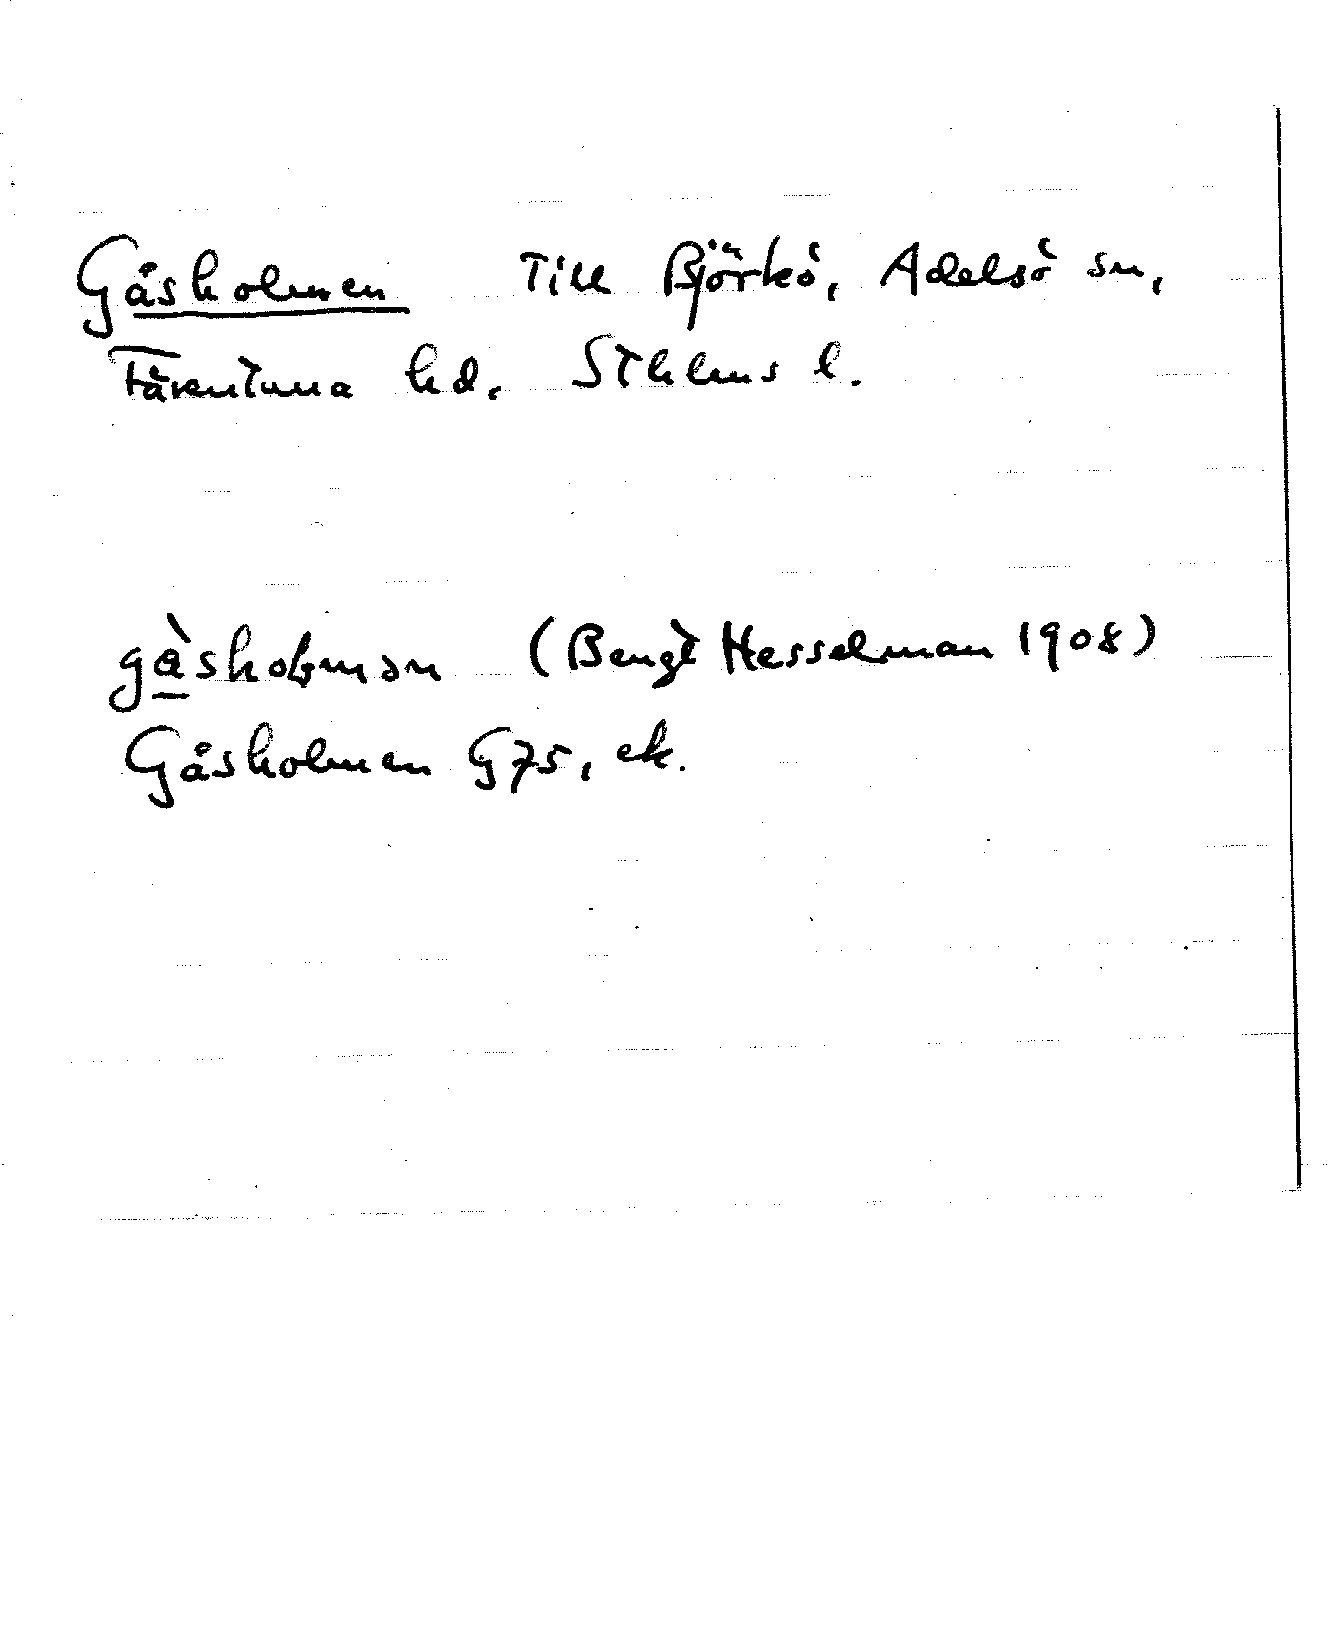 Gåsholmen Till Björkö, Adelsö sn,
Färentuna hd. Sthlms l.
gàsholmən (Bengt Hesselman 1908)
Gåsholmen G75, ek.